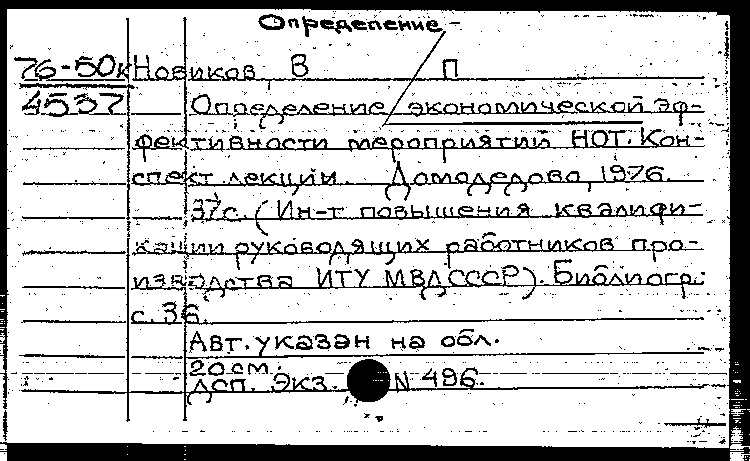 Определение
76-50к Новиков, В П
4537 Определение экономической эф-
фективности мероприятий НОТ. Кон-
спект лекции. Домодедово, 1976.
37с. (Ин-т повышения квалифи-
кации руководящих работников про-
изводства ИТУ МВД СССР). Библиогр.:
с. 36.
Авт. указан на обл.
20 см.
ДСП. Экз. N 496.